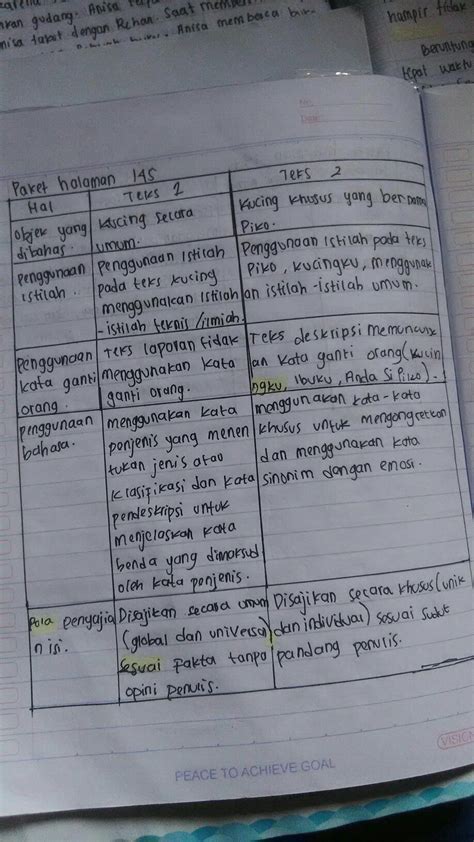 kan gudang. Anisa
nisa takot dengan Rehan. Saat
Anisa membaca
hampir tidak
beruntung
tepat waktu
No.
Date:
Paket halaman 145
Hal
Teks 1
Teks 2
Objek yang
dibahas.
Kucing secara
umum.
Kucing khusus yang bernama
Piko.
penggunaan
istilah.
Penggunaan Istilah
pada teks kucing
menggunakan Istilah
-istilah teknis/ilmiah.
Penggunaan Istilah pada teks
Piko, kucingku, menggunak
an istilah-istilah umum.
penggunaan
kata ganti
orang.
Teks laporan tidak
menggunakan kata
ganti orang.
Teks deskripsi memuncunk
an kata ganti orang (kucin
ngku, Ibuku, Anda Si Piko).
penggunaan
bahasa.
menggunakan kata
penjenis yang menen
tukan jenis atau
klasifikasi dan kata
pendeskripsi untuk
menjelaskan kata
benda yang dimaksud
oleh kata penjenis.
menggunakan kata-kata
khusus untuk mengongretkan
dan menggunakan kata
sinonim dengan emosi.
pola penyajia
n isi.
Disajikan secara umum
(global dan universal)
sesuai fakta tanpa
opini penulis.
Disajikan secara khusus (unik
dan individual) sesuai sudut
pandang penulis.
VISION
PEACE TO ACHIEVE GOAL